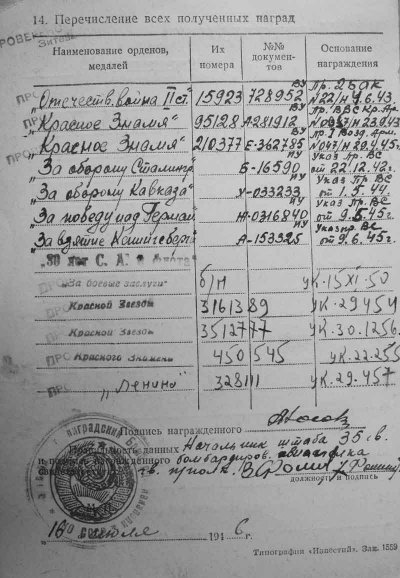 14. Перечисление всех полученных наград
Наименование орденов, медалей Их номера №№ документов Основание награждения
„Отечеств. война II ст.“ 15923 728952 ВУ пр. 2 БАК №22/Н 9.6.43
„Красное Знамя“ 95128 А281912 ВУ пр. ВВС Кр. Ар. 23.9.43
„Красное Знамя“ 210377 Е-362785 ВУ пр. 1 Возд. Арм. №047/Н 20.4.45г.
„За оборону Сталингр. Б-16590 ПУ Указ Пр. ВС от 22.12.42г.
„За оборону Кавказа“ У-033233 ПУ Указ Пр. ВС от 1.5.44
„За победу над Герман Ж-0316840 ПУ Указ пр. ВС от 9.5.45г.
„За взятие Кенигсберг“ А-153325 Указ пр. ВС от 9.6.45г.
„30 лет С. А. и Флота“
„За боевые заслуги“ б/н ук. 15 XI-50
Красной Звезды 3161389 ук. 29
Красной Звезды 3512777 ук. 30.12.56
Красного Знамени 450545 ук. 22.2.55
„Ленина“ 328111 ук. 29.4.57
Подпись награжденного
Правильность данных Начальник штаба 35 гв.
и подпись награжденного бомбардиров. авиаполка
гв. п/полк.
должность и подпись
16 июля 1946 г.
Типография «Известий». Зак. 1559